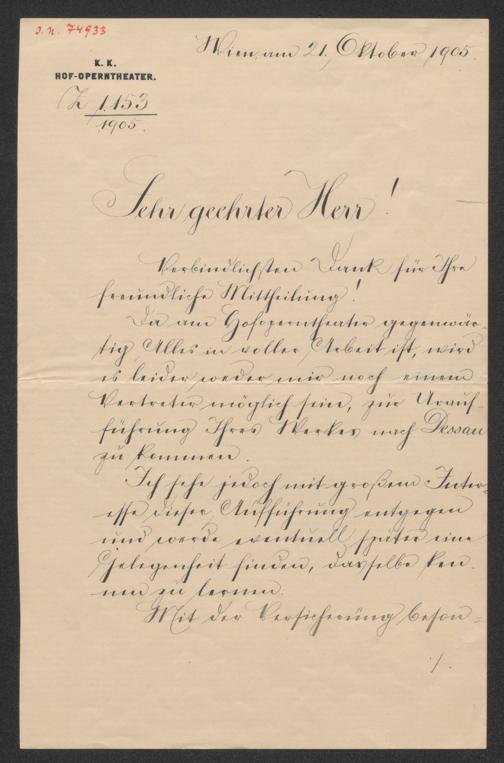 I. N. 74933
Wien, am 21. Oktober 1905.
K. K.
HOF-OPERNTHEATER.
Z 1153
1905.
Sehr geehrter Herr!
Verbindlichsten Dank für Ihre
freundliche Mittheilung!
Da am Hofoperntheater gegenwär-
tig Alles in voller Arbeit ist, wird
es leider weder mir noch einem
Vertreter möglich sein, zur Urauf-
führung Ihres Werkes nach Dessau
zu kommen.
Ich sehe jedoch mit großem Inter-
esse dieser Aufführung entgegen
und werde eventuell später eine
Gelegenheit finden, dasselbe ken-
nen zu lernen.
Mit der Versicherung beson-
./.